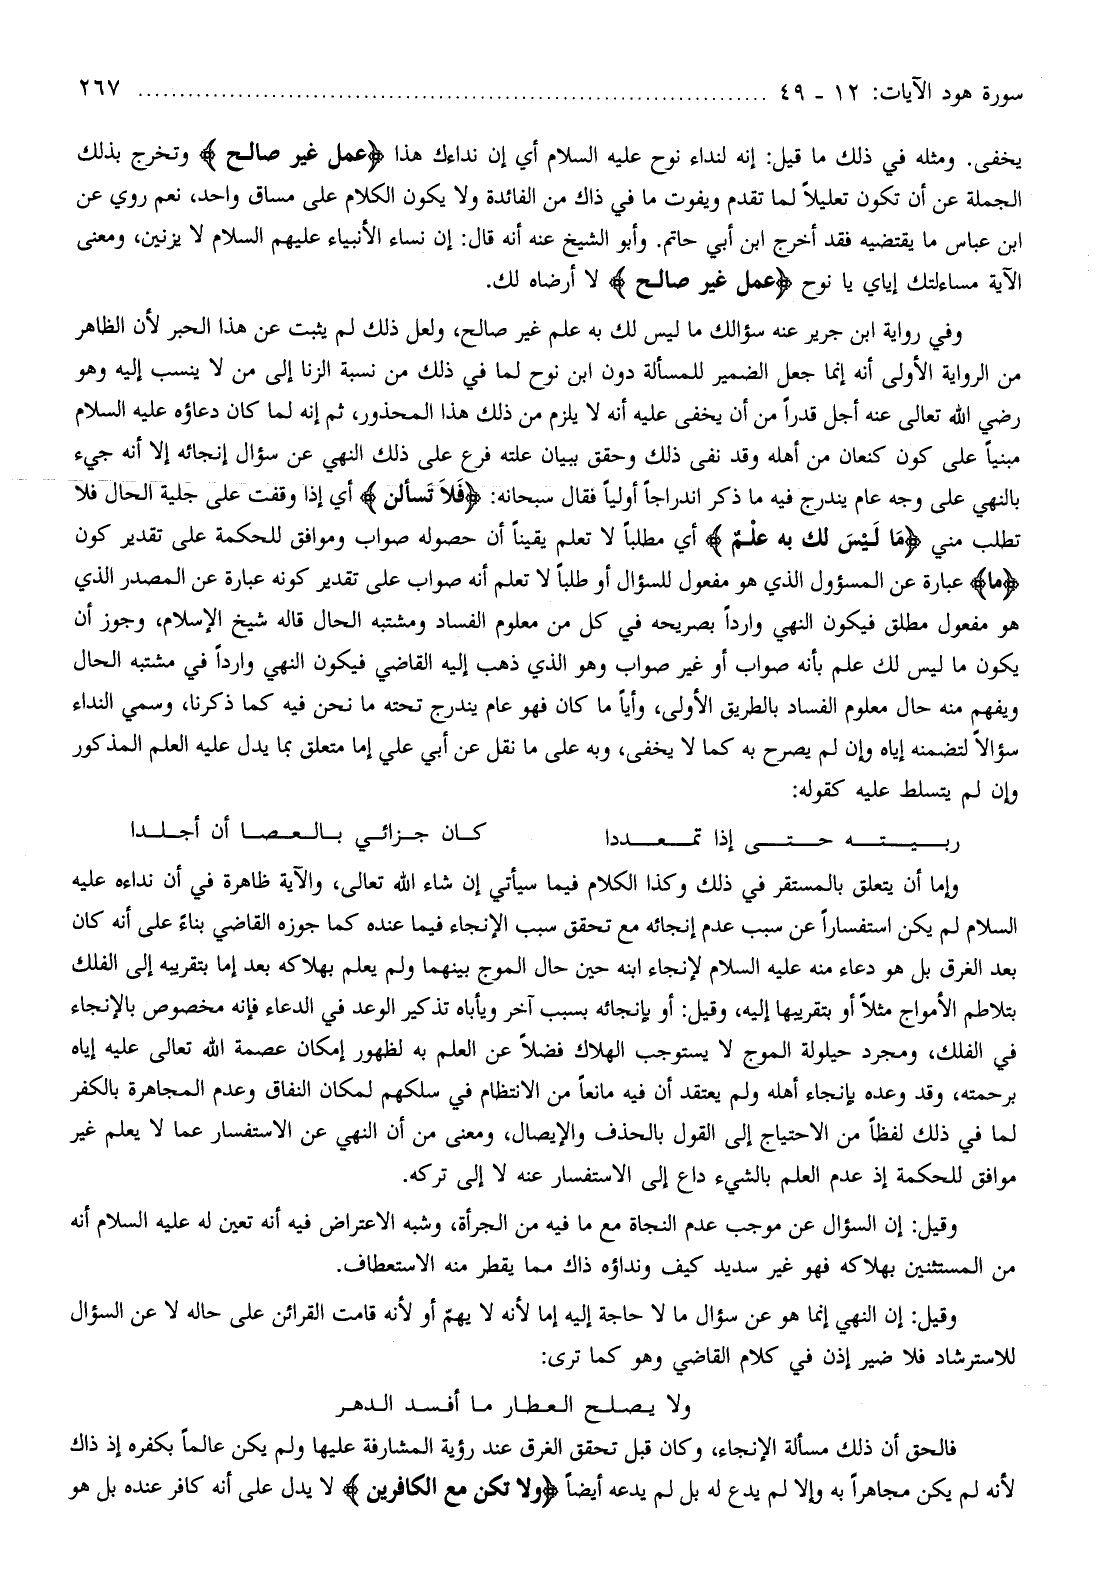 سورة هود الآيات: ١٢ - ٤٩ ........................................................................... ٢٦٧
يخفى. ومثله في ذلك ما قيل: إنه لنداء نوح عليه السلام أي إن نداءك هذا ﴿عمل غير صالح﴾ وتخرج بذلك
الجملة عن أن تكون تعليلاً لما تقدم ويفوت ما في ذاك من الفائدة ولا يكون الكلام على مساق واحد، نعم روي عن
ابن عباس ما يقتضيه فقد أخرج ابن أبي حاتم. وأبو الشيخ عنه أنه قال: إن نساء الأنبياء عليهم السلام لا يزنين، ومعنى
الآية مساءلتك إياي يا نوح ﴿عمل غير صالح﴾ لا أرضاه لك.
وفي رواية ابن جرير عنه سؤالك ما ليس لك به علم غير صالح، ولعل ذلك لم يثبت عن هذا الحبر لأن الظاهر
من الرواية الأولى أنه إنما جعل الضمير للمسألة دون ابن نوح لما في ذلك من نسبة الزنا إلى من لا ينسب إليه وهو
رضي الله تعالى عنه أجل قدراً من أن يخفى عليه أنه لا يلزم من ذلك هذا المحذور، ثم إنه لما كان دعاؤه عليه السلام
مبنياً على كون كنعان من أهله وقد نفى ذلك وحقق ببيان علته فرع على ذلك النهي عن سؤال إنجائه إلا أنه جيء
بالنهي على وجه عام يندرج فيه ما ذكر اندراجاً أولياً فقال سبحانه: ﴿فَلاَ تَسألن﴾ أي إذا وقفت على جلية الحال فلا
تطلب مني ﴿مَا لَيْسَ لك به علْمٌ﴾ أي مطلباً لا تعلم يقيناً أن حصوله صواب وموافق للحكمة على تقدير كون
﴿ما﴾ عبارة عن المسؤول الذي هو مفعول للسؤال أو طلباً لا تعلم أنه صواب على تقدير كونه عبارة عن المصدر الذي
هو مفعول مطلق فيكون النهي وارداً بصريحه في كل من معلوم الفساد ومشتبه الحال قاله شيخ الإسلام، وجوز أن
يكون ما ليس لك علم بأنه صواب أو غير صواب وهو الذي ذهب إليه القاضي فيكون النهي وارداً في مشتبه الحال
ويفهم منه حال معلوم الفساد بالطريق الأولى، وأياً ما كان فهو عام يندرج تحته ما نحن فيه كما ذكرنا، وسمي النداء
سؤالاً لتضمنه إياه وإن لم يصرح به كما لا يخفى، وبه على ما نقل عن أبي علي إما متعلق بما يدل عليه العلم المذكور
وإن لم يتسلط عليه كقوله:
ربيته حتى إذا تمعددا كان جزائي بالعصا أن أجلدا
وإما أن يتعلق بالمستقر في ذلك وكذا الكلام فيما سيأتي إن شاء الله تعالى، والآية ظاهرة في أن نداءه عليه
السلام لم يكن استفساراً عن سبب عدم إنجائه مع تحقق سبب الإنجاء فيما عنده كما جوزه القاضي بناءً على أنه كان
بعد الغرق بل هو دعاء منه عليه السلام لإنجاء ابنه حين حال الموج بينهما ولم يعلم بهلاكه بعد إما بتقريبه إلى الفلك
بتلاطم الأمواج مثلاً أو بتقريبها إليه، وقيل: أو بإنجائه بسبب آخر ويأباه تذكير الوعد في الدعاء فإنه مخصوص بالإنجاء
في الفلك، ومجرد حيلولة الموج لا يستوجب الهلاك فضلاً عن العلم به لظهور إمكان عصمة الله تعالى عليه إياه
برحمته، وقد وعده بإنجاء أهله ولم يعتقد أن فيه مانعاً من الانتظام في سلكهم لمكان النفاق وعدم المجاهرة بالكفر
لما في ذلك لفظاً من الاحتياج إلى القول بالحذف والإيصال، ومعنى من أن النهي عن الاستفسار عما لا يعلم غير
موافق للحكمة إذ عدم العلم بالشيء داع إلى الاستفسار عنه لا إلى تركه.
وقيل: إن السؤال عن موجب عدم النجاة مع ما فيه من الجرأة، وشبه الاعتراض فيه أنه تعين له عليه السلام أنه
من المستثنين بهلاكه فهو غير سديد كيف ونداؤه ذاك مما يقطر منه الاستعطاف.
وقيل: إن النهي إنما هو عن سؤال ما لا حاجة إليه إما لأنه لا يهمّ أو لأنه قامت القرائن على حاله لا عن السؤال
للاسترشاد فلا ضير إذن في كلام القاضي وهو كما ترى:
ولا يصلح العطار ما أفسد الدهر
فالحق أن ذلك مسألة الإنجاء، وكان قبل تحقق الغرق عند رؤية المشارفة عليها ولم يكن عالماً بكفره إذ ذاك
لأنه لم يكن مجاهراً به وإلا لم يدع له بل لم يدعه أيضاً ﴿ولا تكن مع الكافرين﴾ لا يدل على أنه كافر عنده بل هو